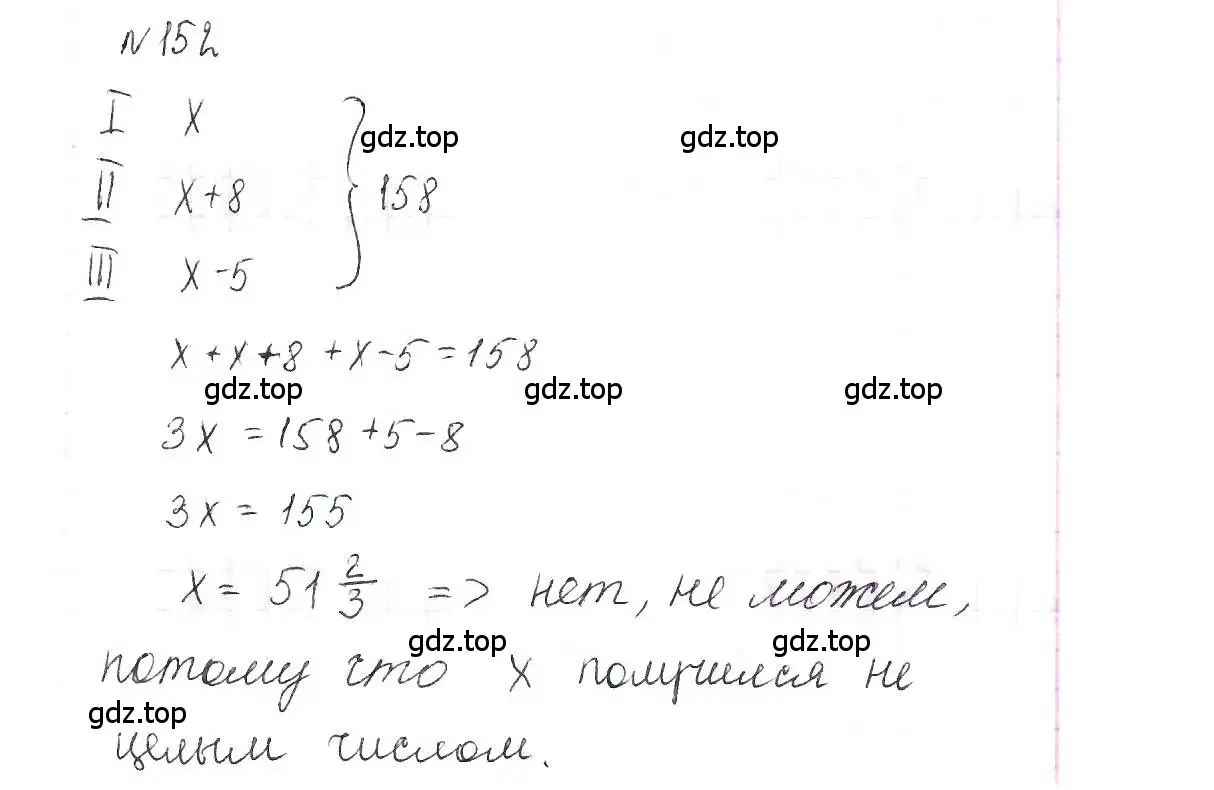 N 152
I x
gdz.top gdz.top
II x+8 158
III x-5
x+x+8+x-5=158
gdz.top gdz.top gdz.top
3x=158+5-8
3x=155
x=51 2/3 => нет, не можем,
gdz.top gdz.top
потому что x получился не
gdz.top
целым числом.